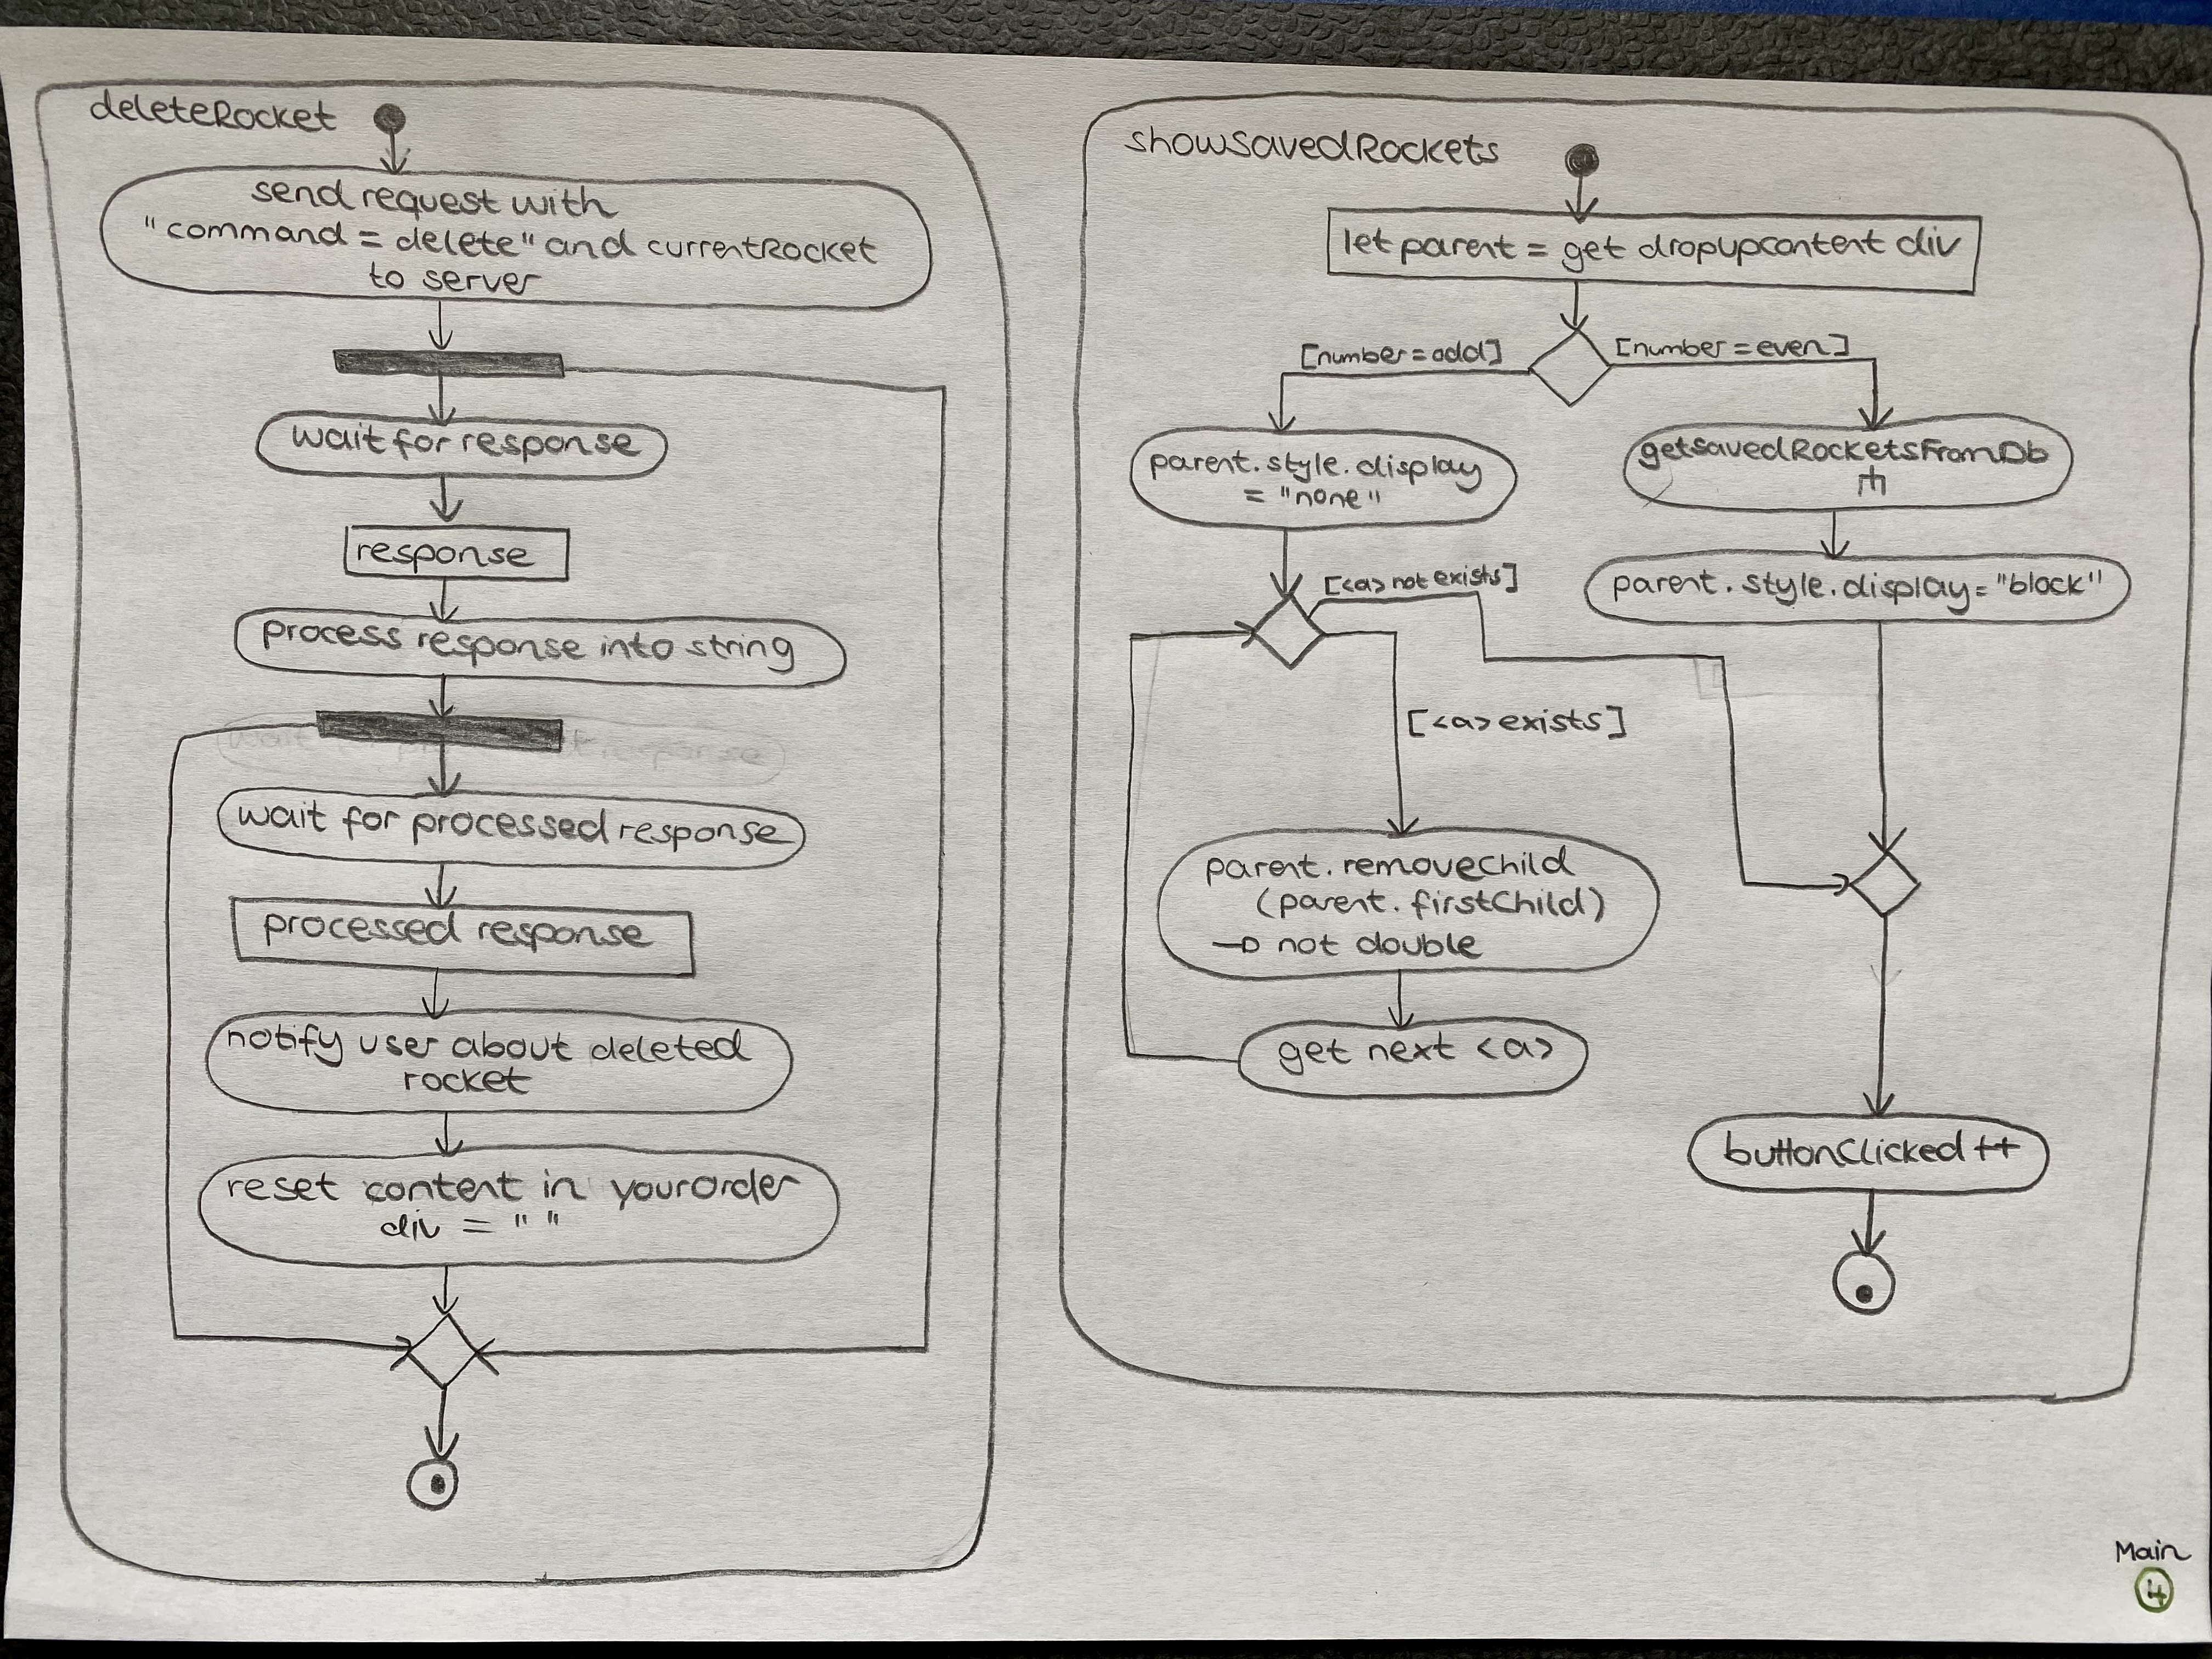 deleteRocket
send request with
"command = delete" and currentRocket
to server
wait for response
response
process response into string
wait for processed response
processed response
notify user about deleted
rocket
reset content in yourorder
div = " "
showSavedRockets
let parent = get dropupcontent div
[number = odd]
[number = even]
parent.style.display
= "none"
getSavedRocketsFromDb
parent.style.display = "block"
[<a> not exists]
[<a> exists]
parent.removeChild
(parent.firstChild)
→ not double
get next <a>
buttonClicked ++
Main
4